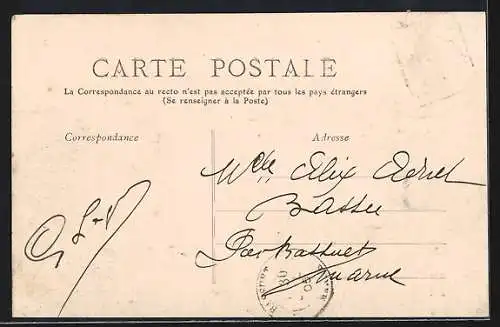 CARTE POSTALE
La Correspondance au recto n'est pas acceptée par tous les pays étrangers
(Se renseigner à la Poste)
Correspondance
Adresse
Mlle Alix
Bassu
Par Bassuet
Marne